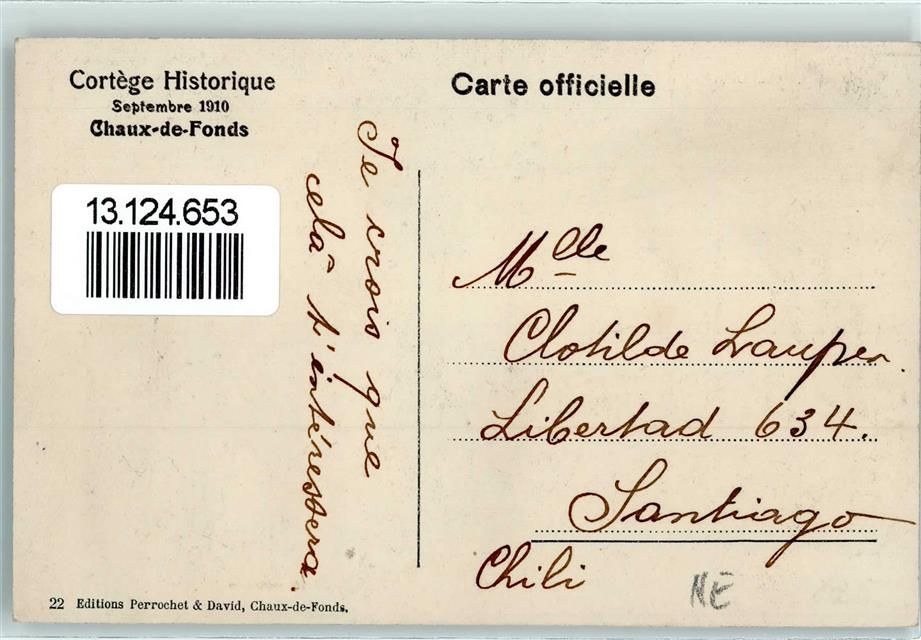 Cortège Historique
Septembre 1910
Chaux-de-Fonds
Carte officielle
13.124.653
Je crois que
celà t'intéressera.
Mlle
Clotilde Lauper
Libertad 634.
Santiago
Chili
NE
22 Editions Perrochet & David, Chaux-de-Fonds.